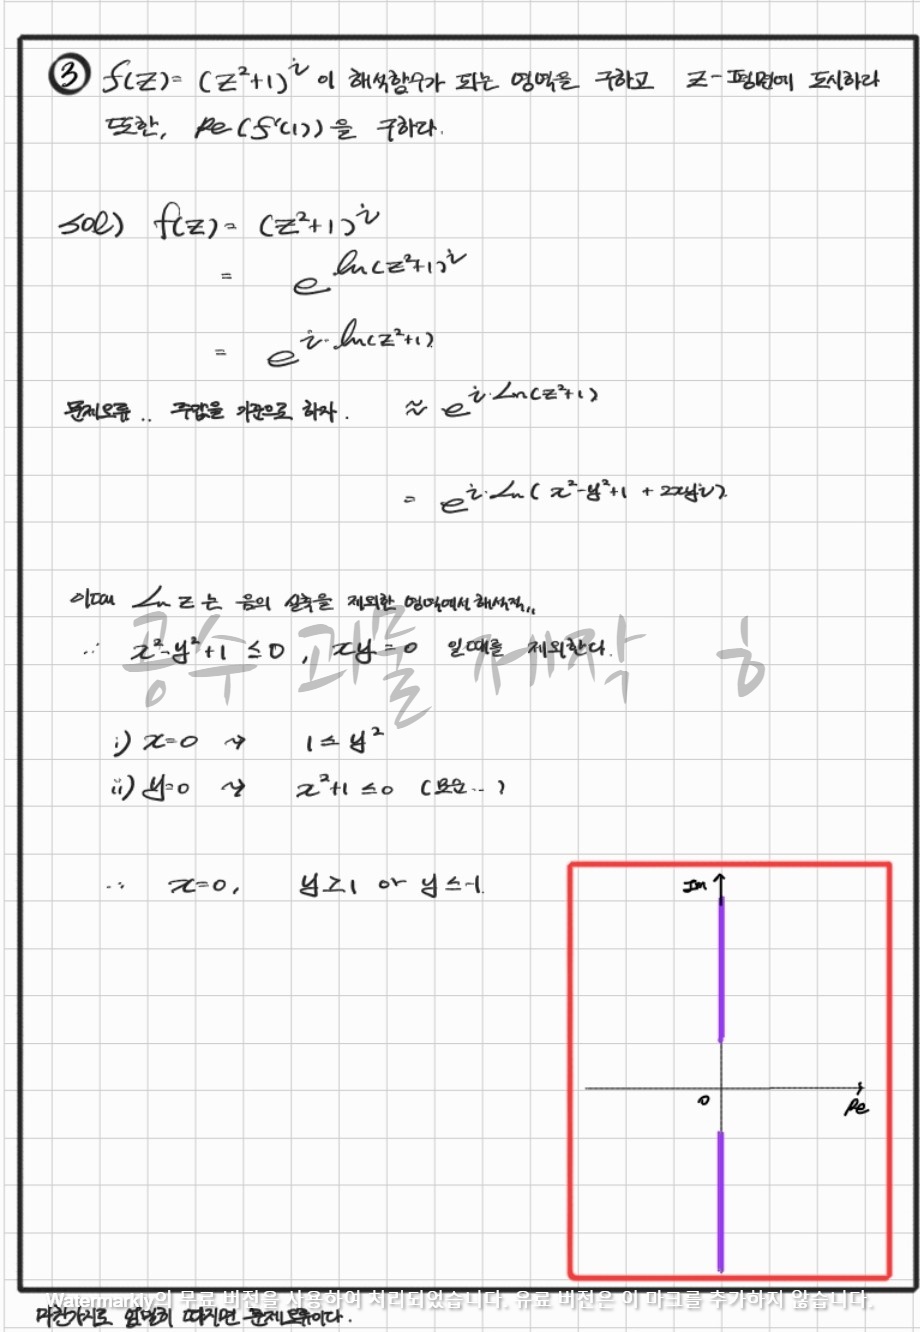 ③ f(z) = (z²+1)^i 이 해석함수가 되는 영역을 구하고 z-평면에 도시하라
또한, Re(f'(i))을 구하라.
sol) f(z) = (z²+1)^i
= e^{ln(z²+1)^i}
= e^{i·ln(z²+1)}
문제오류.. 주값을 기준으로 하자. ≈ e^{i·Ln(z²+1)}
= e^{i·Ln(x²-y²+1 + 2xyi)}
이때 Ln z 는 음의 실축을 제외한 영역에서 해석적,,
∴ x²-y²+1 ≤ 0, xy = 0 일때를 제외한다.
공수 괴물 제작 ㅎ
i) x=0 → 1 ≤ y²
ii) y=0 → x²+1 ≤ 0 (모순..)
∴ x=0, y≥1 or y≤-1.
Im
0
Re
Watermarkly의 무료 버전을 사용하여 처리되었습니다. 유료 버전은 이 마크를 추가하지 않습니다.
마찬가지로 엄밀히 따지면 문제오류이다.